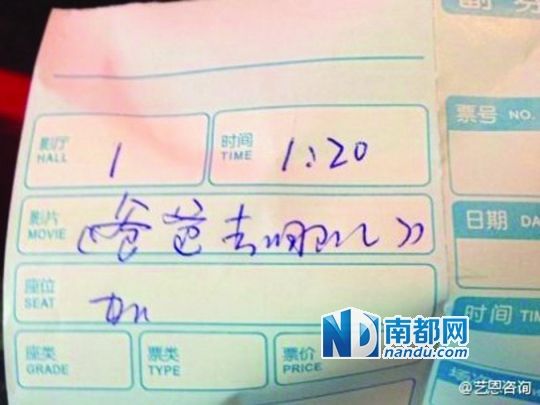 副券
影厅 HALL 1 时间 TIME 1:20
票号 NO.
影片 MOVIE 《爸爸去哪儿》
日期 DA
座位 SEAT 加
时间 TIM
座类 GRADE 票类 TYPE 票价 PRICE
南都网
nandu.com
@艺恩咨询